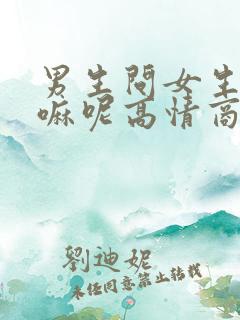 男生問女生
嘛呢高情商
劉迪妮
未经同意禁止转载